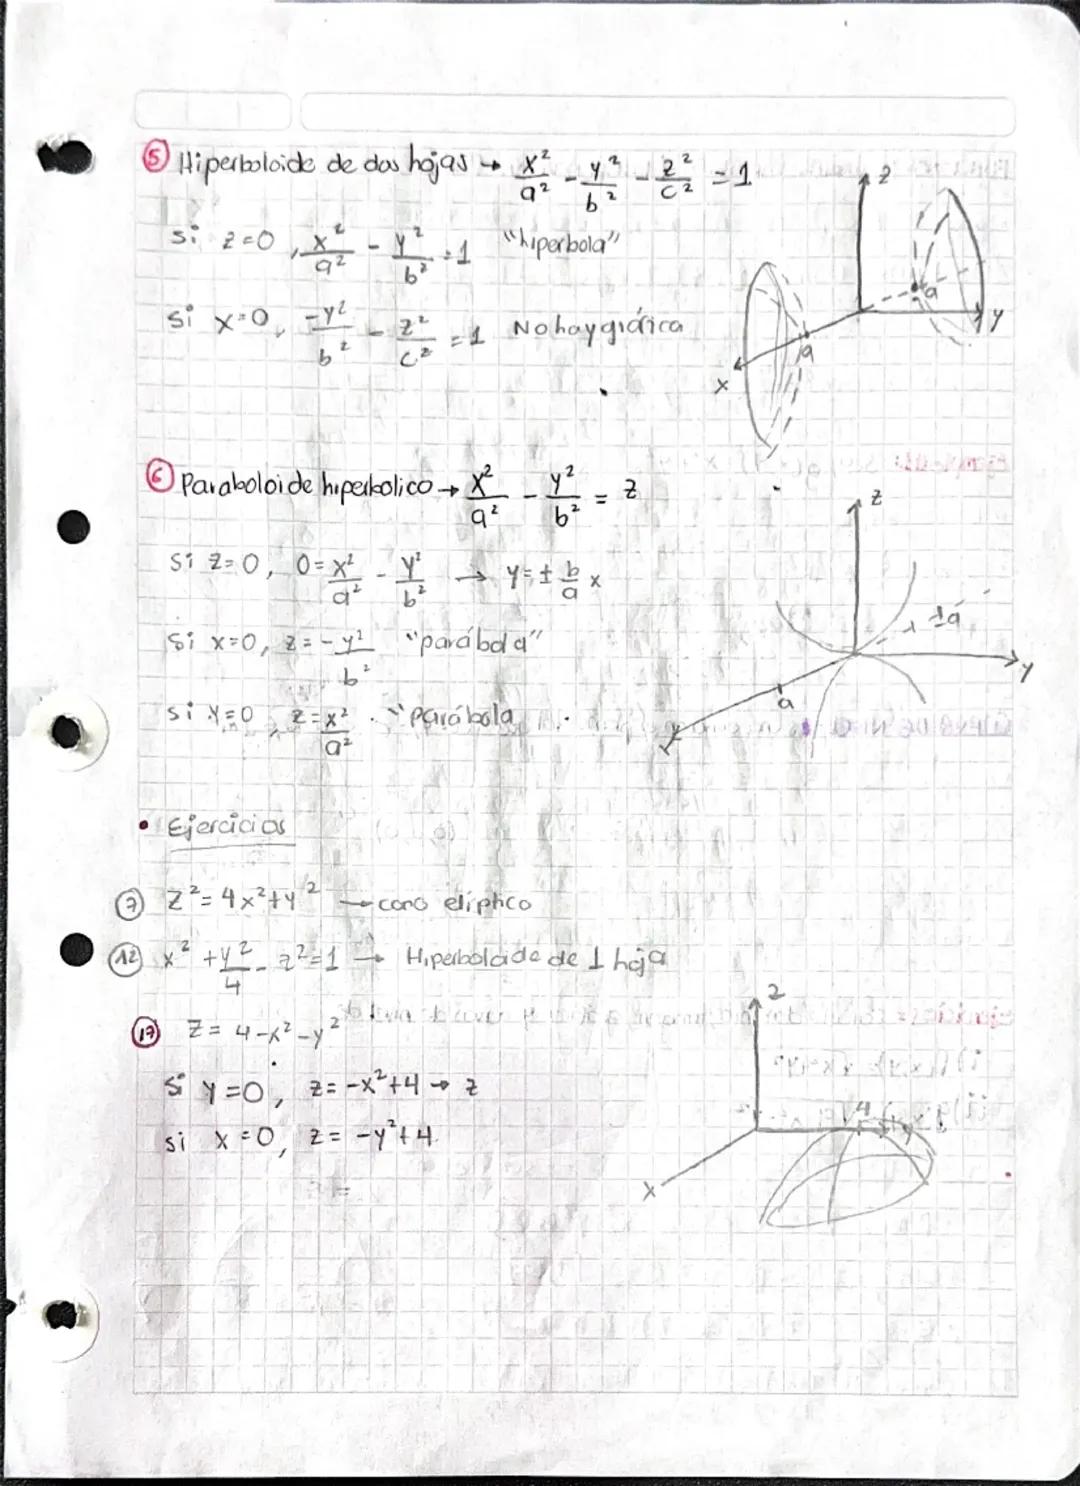 ⑤ Hiperboloide de dos hojas → x²/a² - y²/b² - z²/c² = 1
si z=0, x²/a² - y²/b² = 1 "hiperbola"
si x=0, -y²/b² - z²/c² = 1 No hay gráfica
z
a
y
a
x
⑥ Paraboloide hiperbolico → x²/a² - y²/b² = z
si z=0, 0 = x²/a² - y²/b² → y = ± b/a x
si x=0, z = -y²/b² "parábola"
si y=0, z = x²/a² "parábola
z
y
a
x
• Ejercicios
⑦ z² = 4x²+y² → cono elíptico
⑫ x² + y²/4 - z² = 1 → Hiperboloide de 1 hoja
⑰ z = 4-x²-y²
si y=0, z = -x²+4 → z
si x=0, z = -y²+4
z
4
y
x